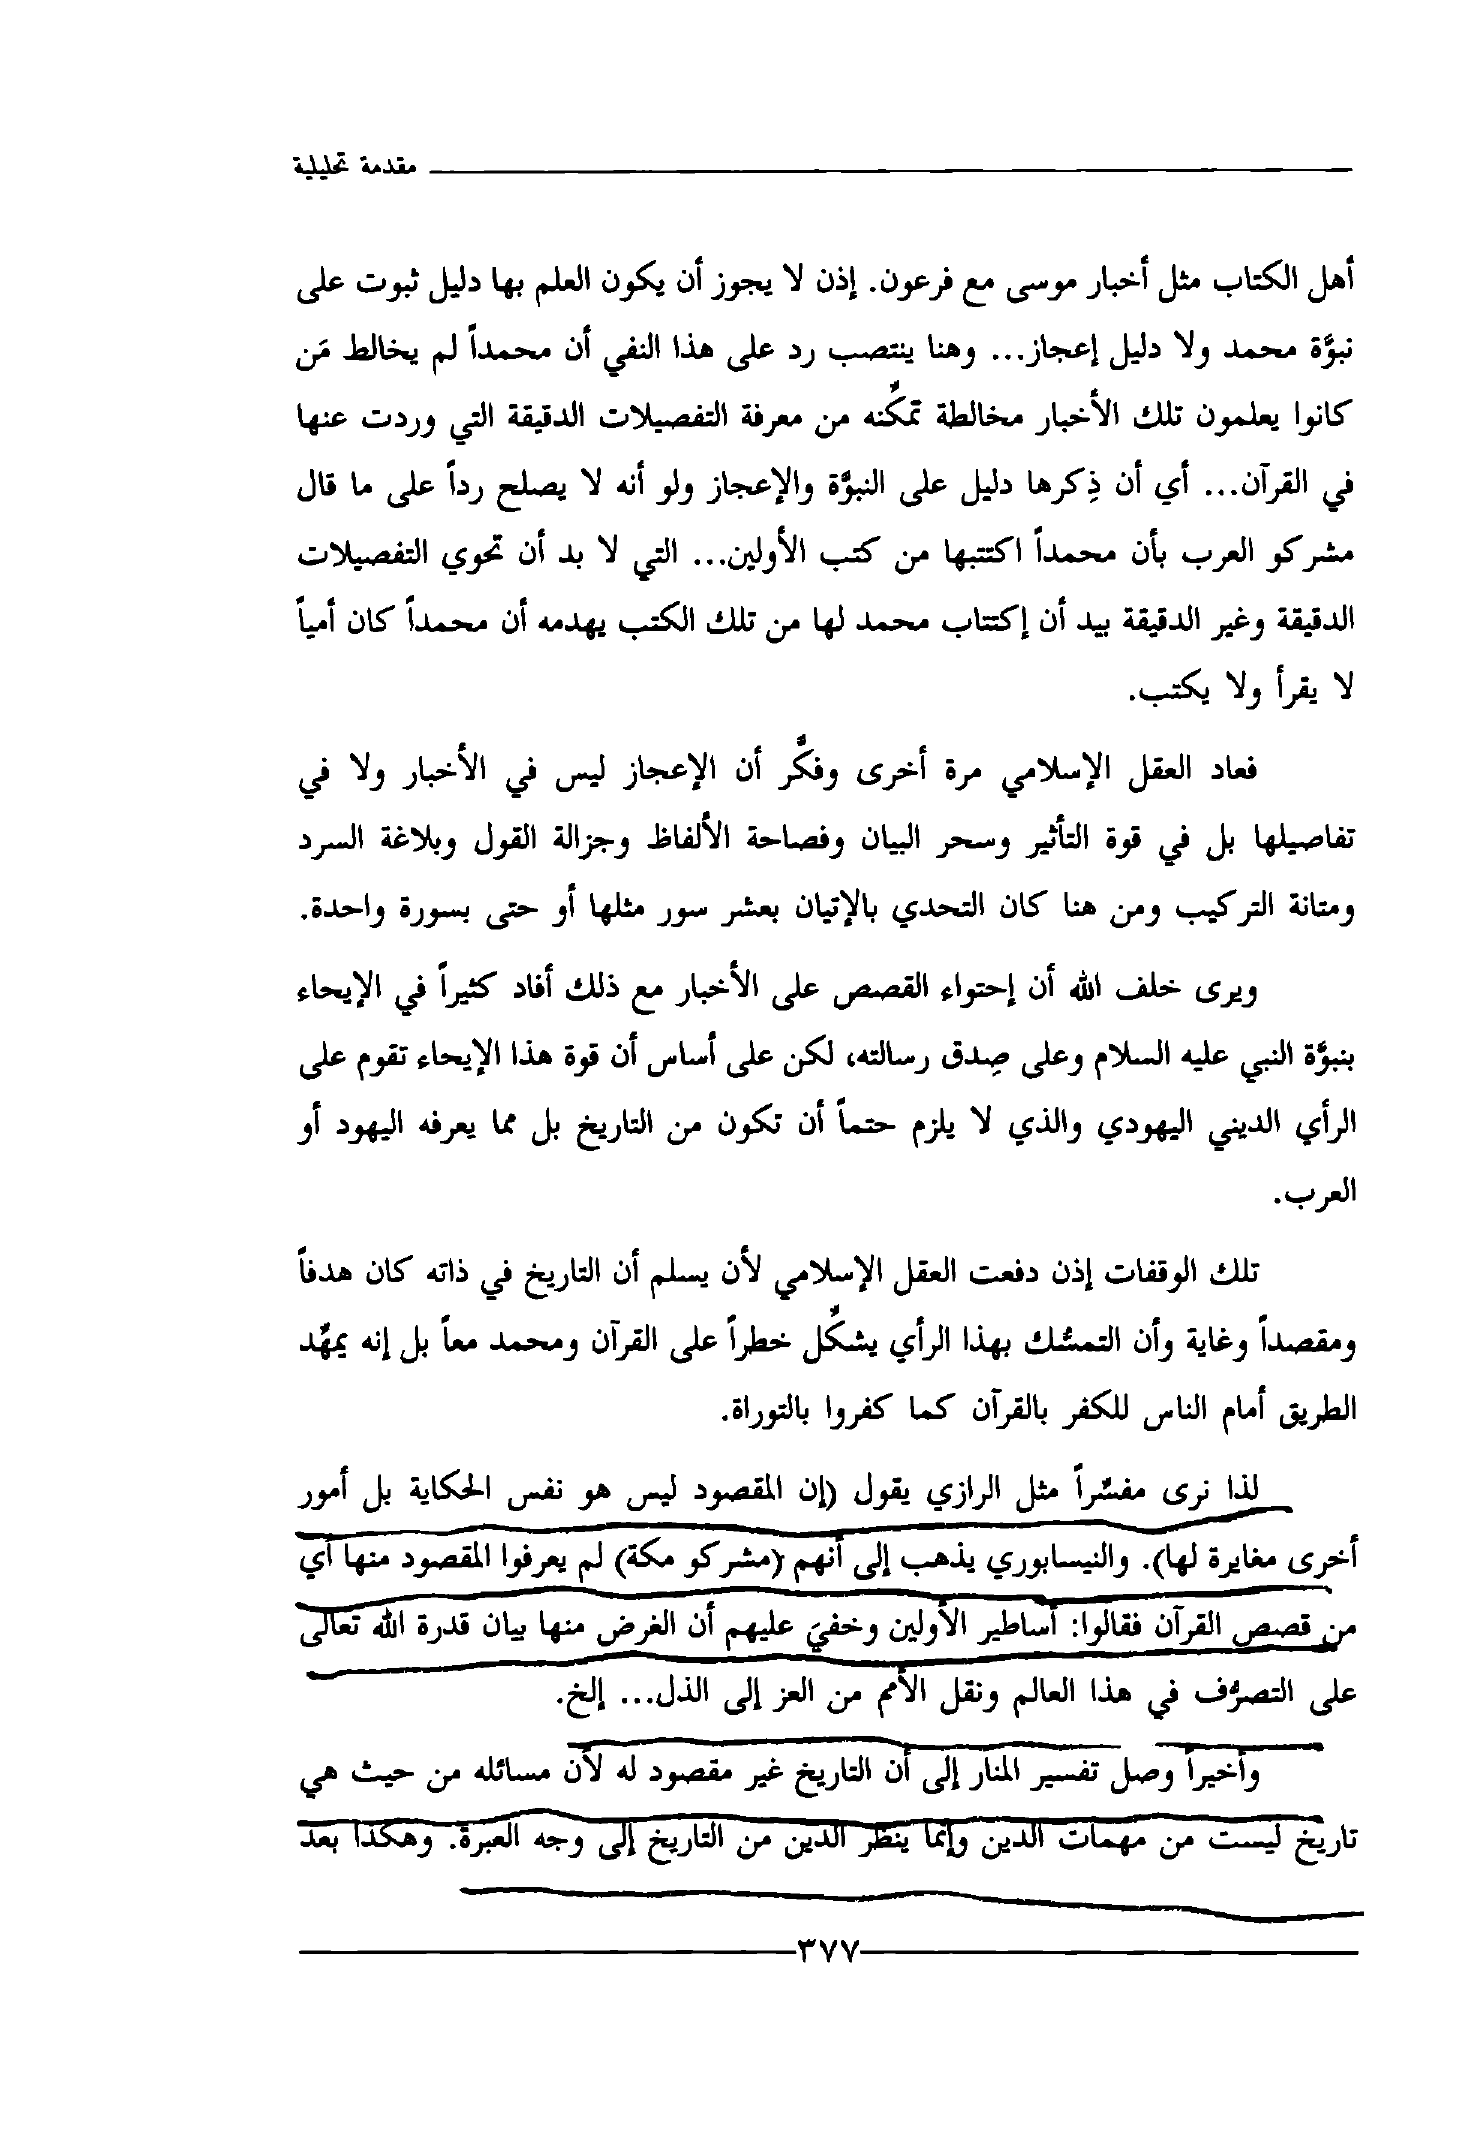 مقدمة تحليلية
أهل الكتاب مثل أخبار موسى مع فرعون. إذن لا يجوز أن يكون العلم بها دليل ثبوت على
نبوَّة محمد ولا دليل إعجاز... وهنا ينتصب رد على هذا النفي أن محمداً لم يخالط مَن
كانوا يعلمون تلك الأخبار مخالطة تمكِّنه من معرفة التفصيلات الدقيقة التي وردت عنها
في القرآن... أي أن ذِكرها دليل على النبوَّة والإعجاز ولو أنه لا يصلح رداً على ما قال
مشركو العرب بأن محمداً اكتتبها من كتب الأولين... التي لا بد أن تحوي التفصيلات
الدقيقة وغير الدقيقة بيد أن إكتتاب محمد لها من تلك الكتب يهدمه أن محمداً كان أمياً
لا يقرأ ولا يكتب.
فعاد العقل الإسلامي مرة أخرى وفكَّر أن الإعجاز ليس في الأخبار ولا في
تفاصيلها بل في قوة التأثير وسحر البيان وفصاحة الألفاظ وجزالة القول وبلاغة السرد
ومتانة التركيب ومن هنا كان التحدي بالإتيان بعشر سور مثلها أو حتى بسورة واحدة.
ويرى خلف الله أن إحتواء القصص على الأخبار مع ذلك أفاد كثيراً في الإيحاء
بنبوَّة النبي عليه السلام وعلى صِدق رسالته، لكن على أساس أن قوة هذا الإيحاء تقوم على
الرأي الديني اليهودي والذي لا يلزم حتماً أن تكون من التاريخ بل مما يعرفه اليهود أو
العرب.
تلك الوقفات إذن دفعت العقل الإسلامي لأن يسلم أن التاريخ في ذاته كان هدفاً
ومقصداً وغاية وأن التمسُّك بهذا الرأي يشكِّل خطراً على القرآن ومحمد معاً بل إنه يمهِّد
الطريق أمام الناس للكفر بالقرآن كما كفروا بالتوراة.
لذا نرى مفسِّراً مثل الرازي يقول (إن المقصود ليس هو نفس الحكاية بل أمور
أخرى مغايرة لها). والنيسابوري يذهب إلى أنهم (مشركو مكة) لم يعرفوا المقصود منها أي
من قصص القرآن فقالوا: أساطير الأولين وخفيَ عليهم أن الغرض منها بيان قدرة الله تعالى
على التصرُّف في هذا العالم ونقل الأمم من العز إلى الذل... إلخ.
وأخيراً وصل تفسير المنار إلى أن التاريخ غير مقصود له لأن مسائله من حيث هي
تاريخ ليست من مهمات الدين وإنما ينظر الدين من التاريخ إلى وجه العبرة. وهكذا بعد
٣٧٧